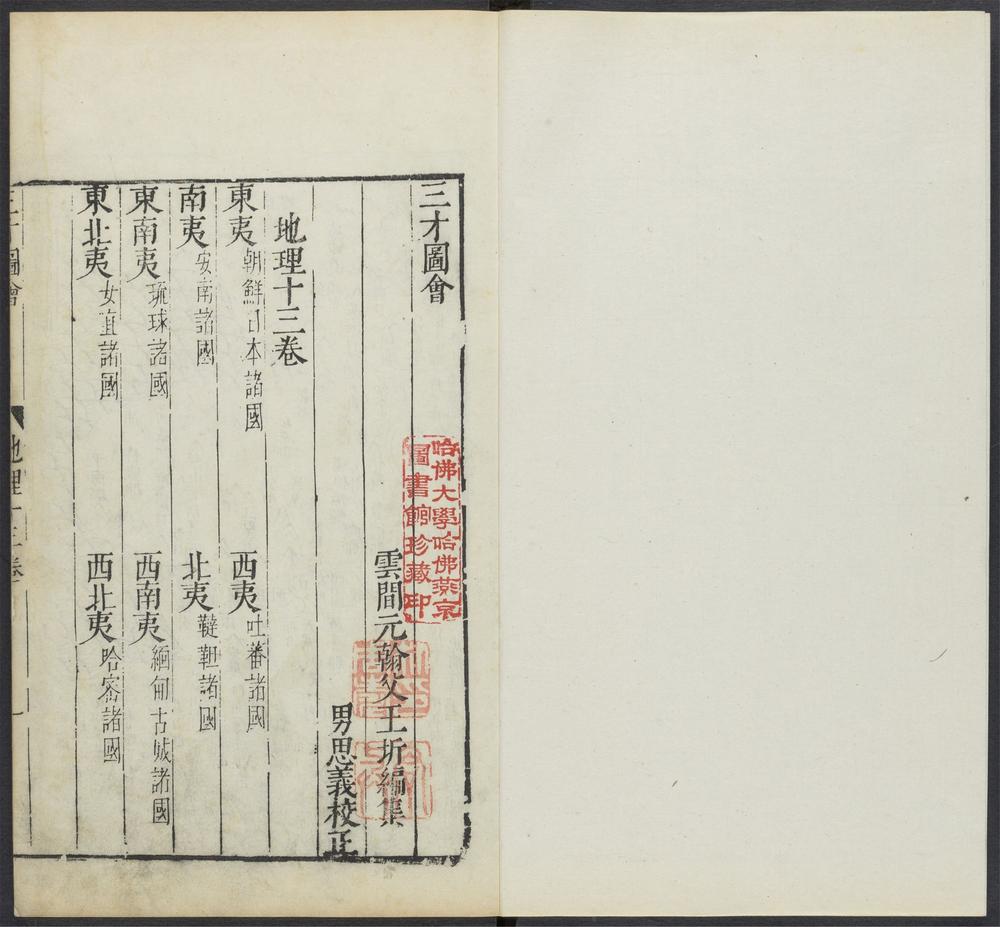 三才圖會
雲間元翰父王圻編集
男思義校正
地理十三卷
東夷 朝鮮日本諸國 西夷 吐蕃諸國
南夷 安南諸國 北夷 韃靼諸國
東南夷 琉球諸國 西南夷 緬甸古城諸國
東北夷 女直諸國 西北夷 哈密諸國
三才圖會 地理十三卷 一
哈佛大學哈佛燕京
圖書館珍藏印